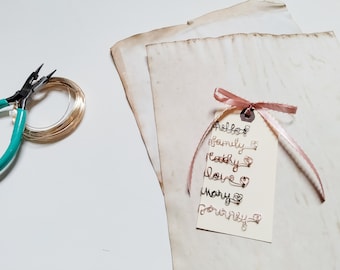 hello
family
Kathy
love
mary
Journey